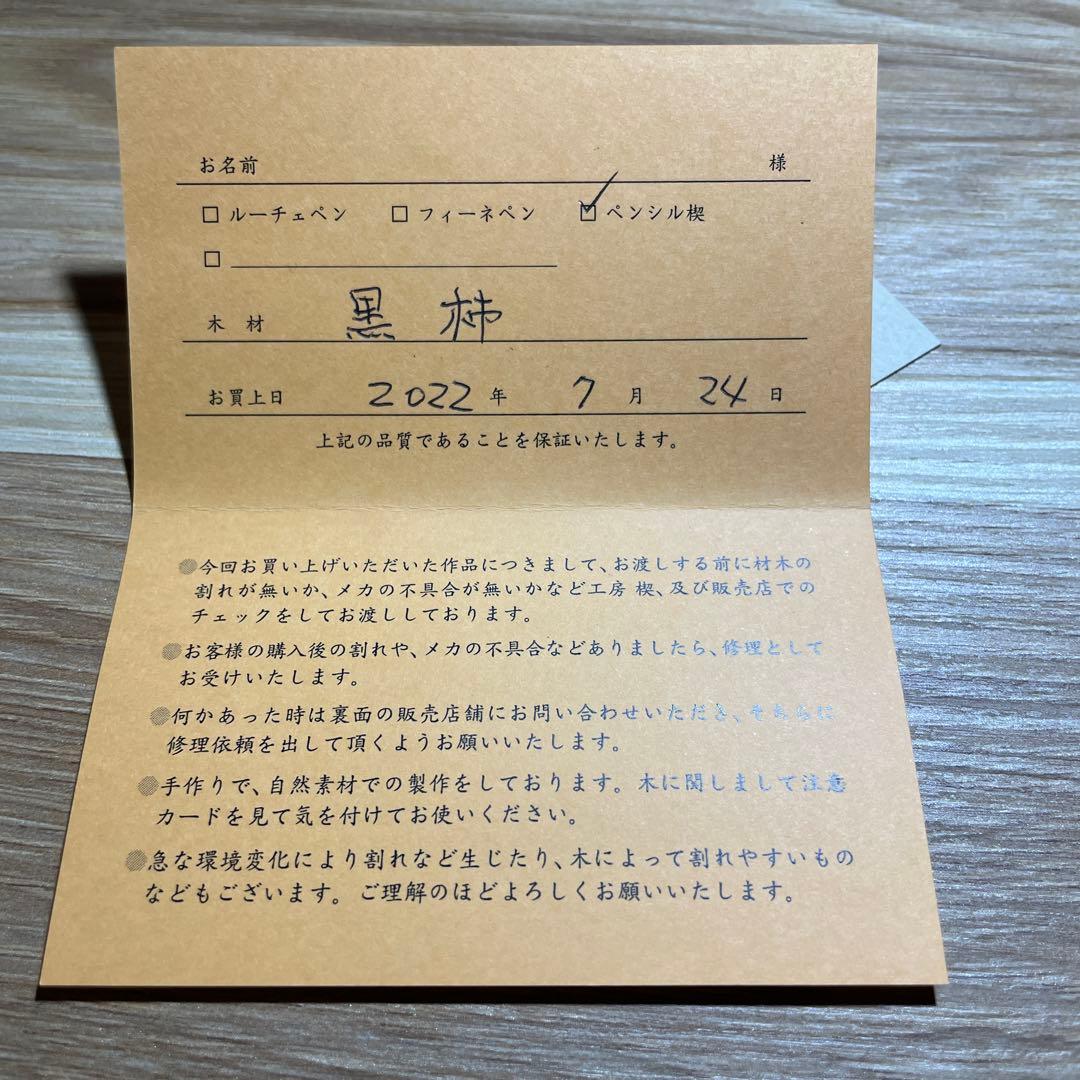 お名前 様
□ ルーチェペン □ フィーネペン ☑ ペンシル楔
□
木 材 黒 柿
お買上日 2022 年 7 月 24 日
上記の品質であることを保証いたします。
●今回お買い上げいただいた作品につきまして、お渡しする前に材木の
割れが無いか、メカの不具合が無いかなど工房 楔、及び販売店での
チェックをしてお渡ししております。
●お客様の購入後の割れや、メカの不具合などありましたら、修理として
お受けいたします。
●何かあった時は裏面の販売店舗にお問い合わせいただき、そちらに
修理依頼を出して頂くようお願いいたします。
●手作りで、自然素材での製作をしております。木に関しまして注意
カードを見て気を付けてお使いください。
●急な環境変化により割れなど生じたり、木によって割れやすいもの
などもございます。ご理解のほどよろしくお願いいたします。